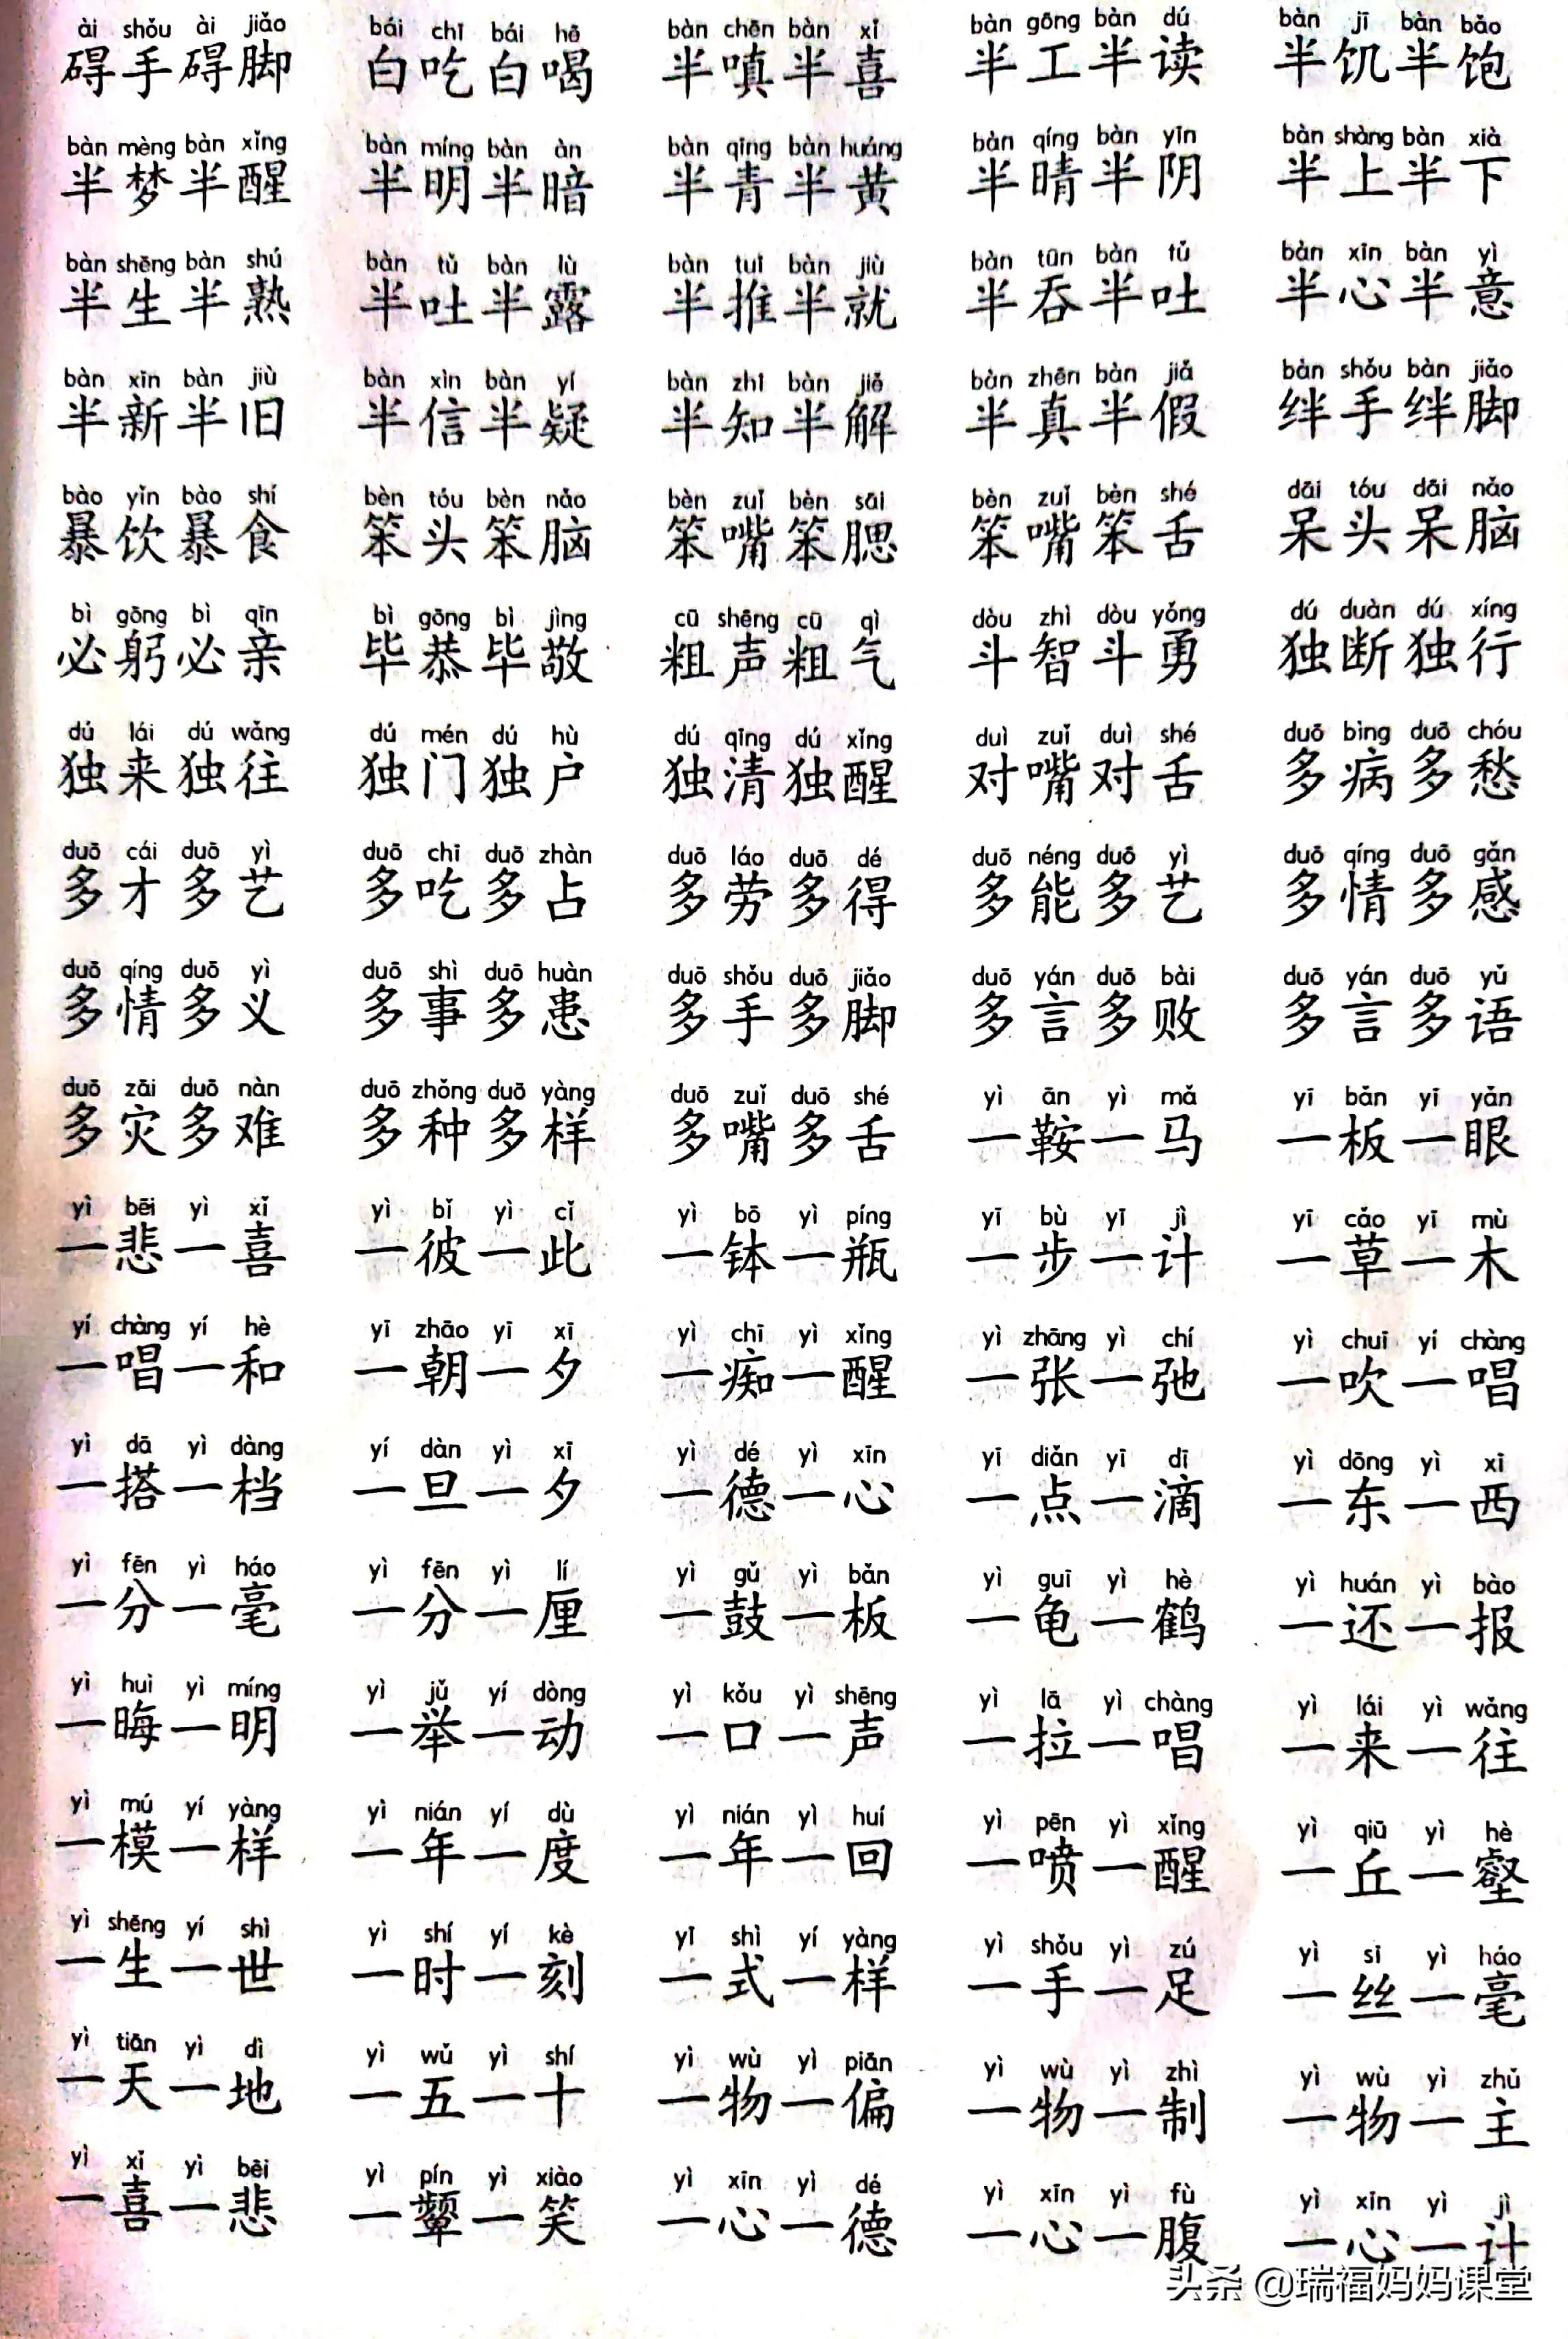 ài shǒu ài jiǎo bái chī bái hē bàn chēn bàn xǐ bàn gōng bàn dú bàn jī bàn bǎo
碍手碍脚 白吃白喝 半嗔半喜 半工半读 半饥半饱
bàn mèng bàn xǐng bàn míng bàn àn bàn qīng bàn huáng bàn qíng bàn yīn bàn shàng bàn xià
半梦半醒 半明半暗 半青半黄 半晴半阴 半上半下
bàn shēng bàn shú bàn tǔ bàn lù bàn tuī bàn jiù bàn tūn bàn tǔ bàn xīn bàn yì
半生半熟 半吐半露 半推半就 半吞半吐 半心半意
bàn xīn bàn jiù bàn xìn bàn yí bàn zhī bàn jiě bàn zhēn bàn jiǎ bàn shǒu bàn jiǎo
半新半旧 半信半疑 半知半解 半真半假 绊手绊脚
bào yǐn bào shí bèn tóu bèn nǎo bèn zuǐ bèn sāi bèn zuǐ bèn shé dāi tóu dāi nǎo
暴饮暴食 笨头笨脑 笨嘴笨腮 笨嘴笨舌 呆头呆脑
bì gōng bì qīn bì gōng bì jìng cū shēng cū qì dòu zhì dòu yǒng dú duàn dú xíng
必躬必亲 毕恭毕敬 粗声粗气 斗智斗勇 独断独行
dú lái dú wǎng dú mén dú hù dú qīng dú xǐng duì zuǐ duì shé duō bìng duō chóu
独来独往 独门独户 独清独醒 对嘴对舌 多病多愁
duō cái duō yì duō chī duō zhàn duō láo duō dé duō néng duō yì duō qíng duō gǎn
多才多艺 多吃多占 多劳多得 多能多艺 多情多感
duō qíng duō yì duō shì duō huàn duō shǒu duō jiǎo duō yán duō bài duō yán duō yǔ
多情多义 多事多患 多手多脚 多言多败 多言多语
duō zāi duō nàn duō zhǒng duō yàng duō zuǐ duō shé yì ān yì mǎ yī bǎn yī yǎn
多灾多难 多种多样 多嘴多舌 一鞍一马 一板一眼
yì bēi yì xǐ yì bǐ yì cǐ yì bō yì píng yī bù yī jì yī cǎo yī mù
一悲一喜 一彼一此 一钵一瓶 一步一计 一草一木
yí chàng yí hè yī zhāo yī xī yì chī yì xǐng yì zhāng yì chí yì chuī yí chàng
一唱一和 一朝一夕 一痴一醒 一张一弛 一吹一唱
yì dā yì dàng yí dàn yì xī yì dé yì xīn yī diǎn yī dī yì dōng yì xī
一搭一档 一旦一夕 一德一心 一点一滴 一东一西
yì fēn yì háo yì fēn yì lí yì gǔ yì bǎn yì guī yì hè yì huán yì bào
一分一毫 一分一厘 一鼓一板 一龟一鹤 一还一报
yì huì yì míng yì jǔ yí dòng yì kǒu yì shēng yì lā yì chàng yì lái yì wǎng
一晦一明 一举一动 一口一声 一拉一唱 一来一往
yì mú yí yàng yì nián yí dù yì nián yì huí yì pēn yì xǐng yì qiū yì hè
一模一样 一年一度 一年一回 一喷一醒 一丘一壑
yì shēng yí shì yì shí yí kè yī shì yí yàng yì shǒu yì zú yì sī yì háo
一生一世 一时一刻 一式一样 一手一足 一丝一毫
yì tiān yì dì yì wǔ yì shí yì wù yì piān yì wù yì zhì yì wù yì zhǔ
一天一地 一五一十 一物一偏 一物一制 一物一主
yì xǐ yì bēi yì pín yì xiào yì xīn yì dé yì xīn yì fù yì xīn yì jì
一喜一悲 一颦一笑 一心一德 一心一腹 一心一计
头条 @瑞福妈妈课堂